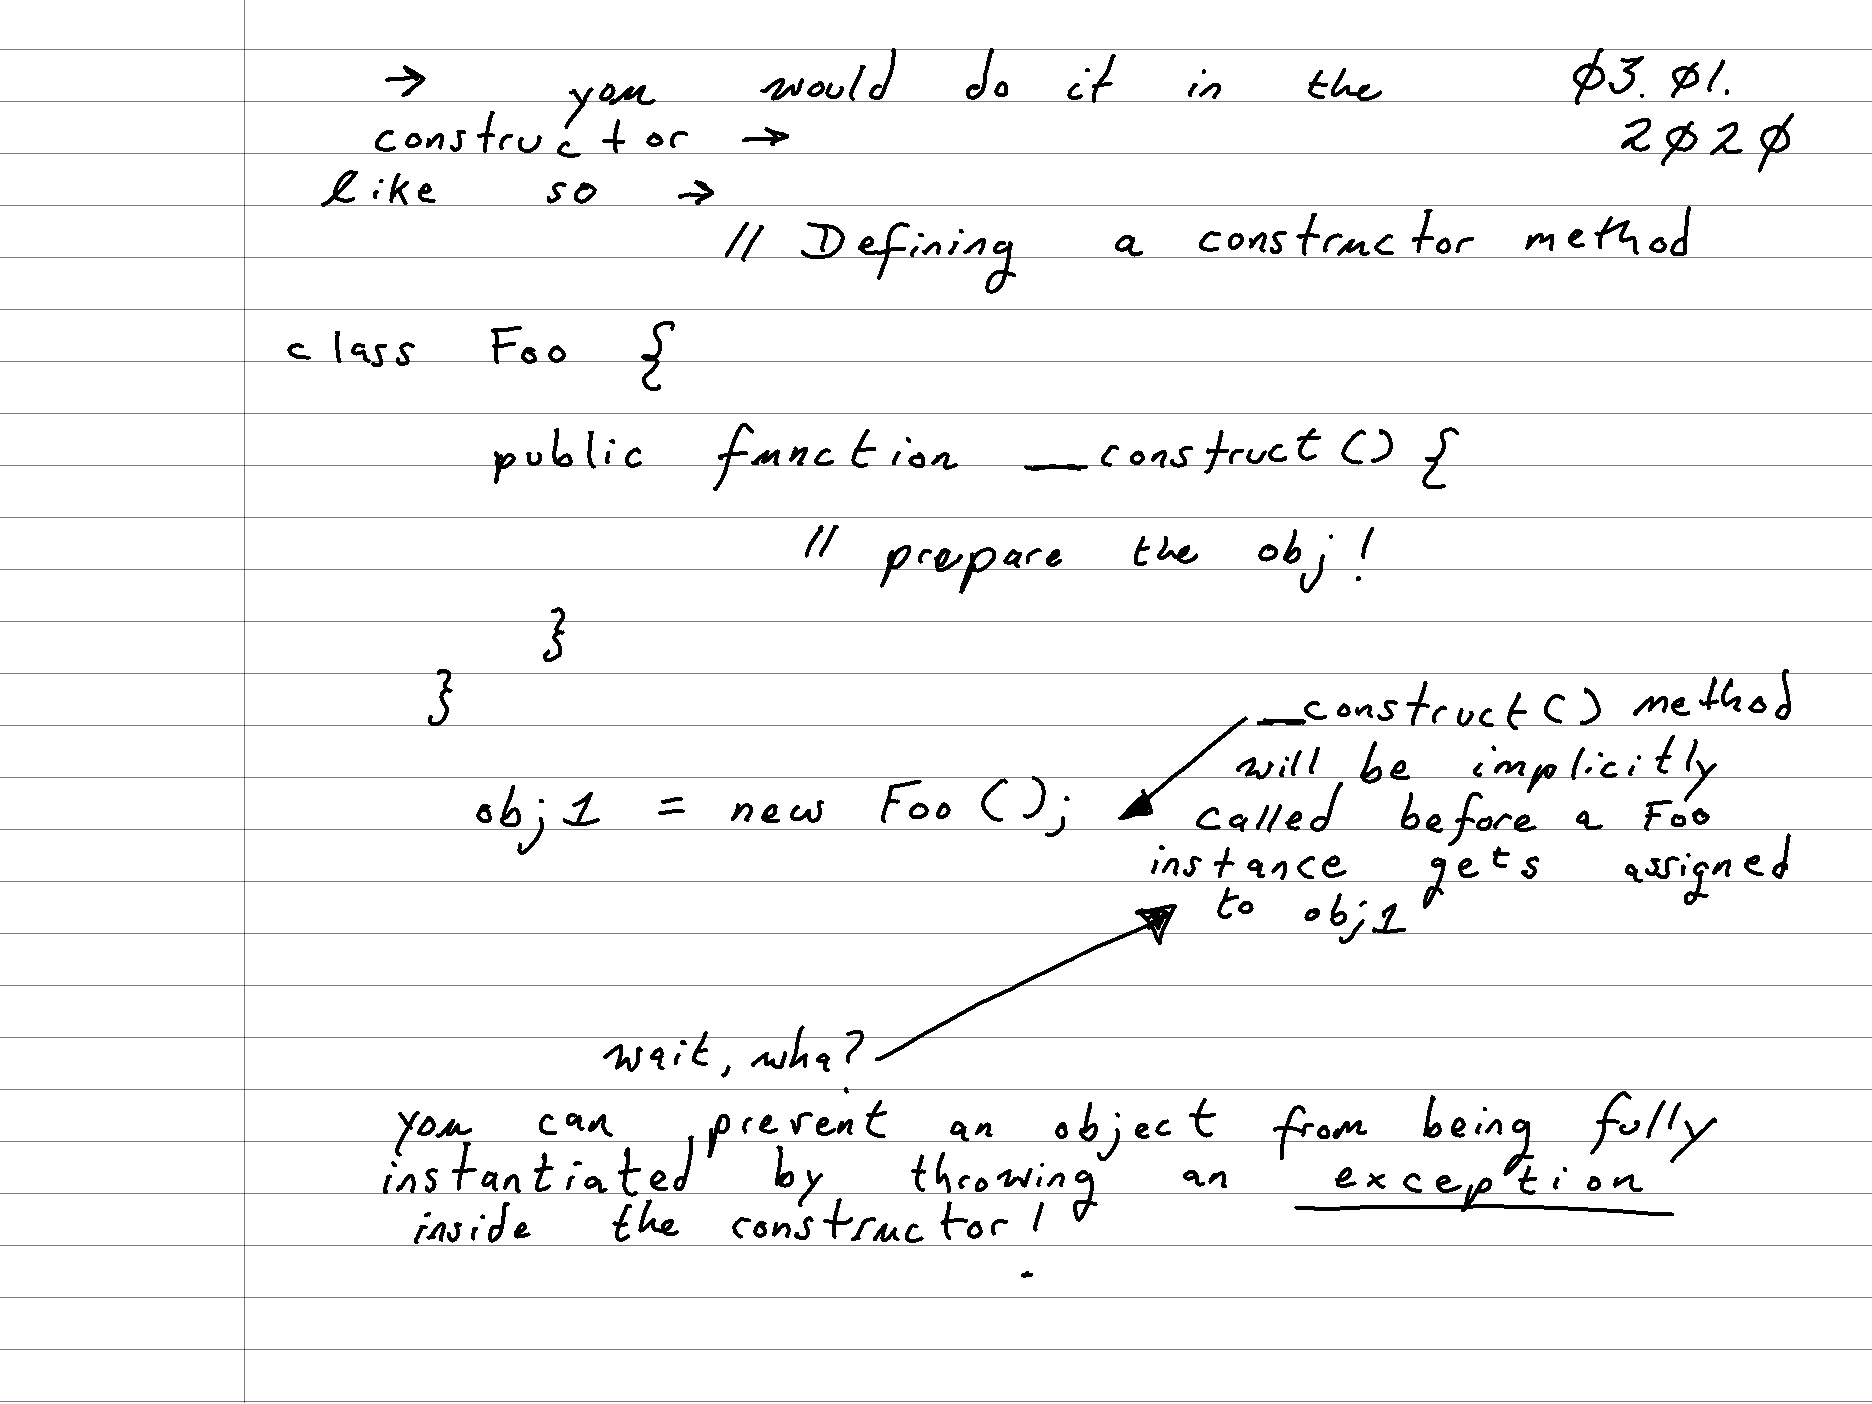 → you would do it in the ø3. ø1.
constructor → 2ø2ø
like so →
// Defining a constructor method
class Foo {
public function __construct() {
// prepare the obj!
}
}
__construct() method
will be implicitly
obj1 = new Foo();
called before a Foo
instance gets assigned
to obj1
wait, wha?
you can prevent an object from being fully
instantiated by throwing an exception
inside the constructor!